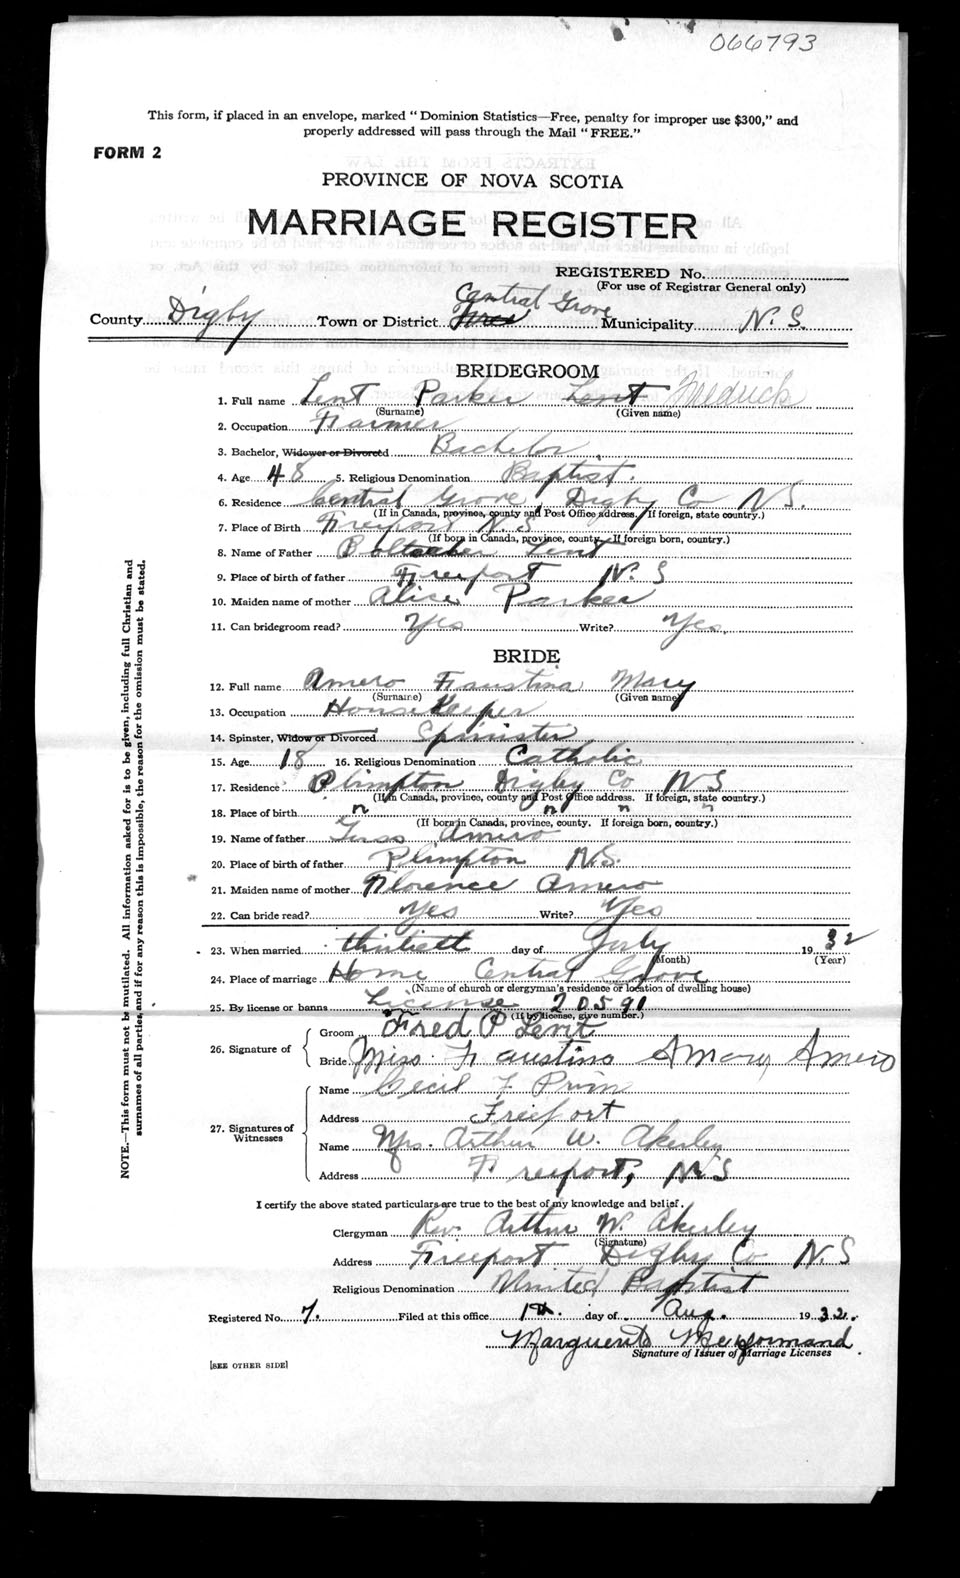 066793
This form, if placed in an envelope, marked "Dominion Statistics—Free, penalty for improper use $300," and
properly addressed will pass through the Mail "FREE."
FORM 2
PROVINCE OF NOVA SCOTIA
MARRIAGE REGISTER
REGISTERED No.
(For use of Registrar General only)
Central Grove
County Digby Town or District Municipality N. S.
BRIDEGROOM
1. Full name Lent Parker Lent Fredrick
(Surname) (Given name)
2. Occupation Farmer
3. Bachelor, Widower or Divorced Bachelor
4. Age 48 5. Religious Denomination Baptist.
6. Residence Central Grove Digby Co N S.
(If in Canada, province, county and Post Office address. If foreign, state country.)
7. Place of Birth Freeport N. S
(If born in Canada, province, county. If foreign born, country.)
8. Name of Father Lent
9. Place of birth of father Freeport N. S
10. Maiden name of mother Alice Parker
11. Can bridegroom read? Yes Write? Yes.
BRIDE
12. Full name Amero Faustina Mary
(Surname) (Given name)
13. Occupation House Keeper
14. Spinster, Widow or Divorced Spinister
15. Age 18 16. Religious Denomination Catholic
17. Residence Plimpton Digby Co N S
(If in Canada, province, county and Post Office address. If foreign, state country.)
18. Place of birth " " " "
(If born in Canada, province, county. If foreign born, country.)
19. Name of father Amero
20. Place of birth of father Plimpton N.S.
21. Maiden name of mother Florence Amero
22. Can bride read? Yes Write? Yes
23. When married thirtieth day of July 1932
(Month) (Year)
24. Place of marriage Home Central Grove
(Name of church or clergyman's residence or location of dwelling house)
25. By license or banns License 20591
(If by license, give number.)
26. Signature of
Groom Fred P Lent
Bride Miss Faustina Amero
27. Signatures of Witnesses
Name Cecil F Prim
Address Freeport
Name Mrs. Arthur W. Akerley
Address Freeport, N.S
I certify the above stated particulars are true to the best of my knowledge and belief.
Clergyman Rev. Arthur W. Akerley
(Signature)
Address Freeport Digby Co N. S
Religious Denomination United Baptist
Registered No. 7. Filed at this office 1st. day of Aug. 1932.
Marguerite
Signature of Issuer of Marriage Licenses
[SEE OTHER SIDE]
NOTE.—This form must not be mutilated. All information asked for is to be given, including full Christian and
surnames of all parties, and if for any reason this is impossible, the reason for the omission must be stated.